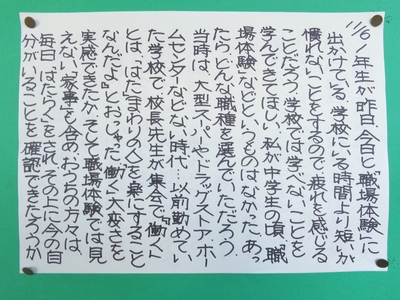 11/6 1年生が昨日、今日と「職場体験」に
出かけている。学校にいる時間より短いが
慣れないことをするので疲れを感じる
ことだろう。学校では学べないことを
学んできてほしい。私が中学生の頃、「職
場体験」などというものはなかった。あっ
たらどんな職種を選んでいただろう。
当時は、大型スーパーやドラッグストア、ホー
ムセンターなどない時代…以前勤めてい
た学校で、校長先生が集会で『「働く」
とは、「はた」（まわりの人）を楽にすること
なんだよ』とおっしゃった。働く大変さを
実感できたか。そして、職場体験では見
えない「家事」を含め、おうちの方々は、
毎日「はたらく」をされ、その上に今の自
分がいることを確認できただろうか